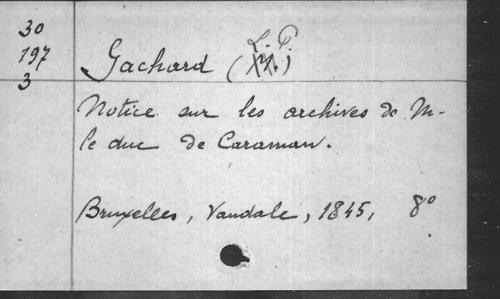 30
197
3
Gachard (L. P.)
Notice sur les archives de M.
le duc de Caraman.
Bruxelles, Vandale, 1845, 8°